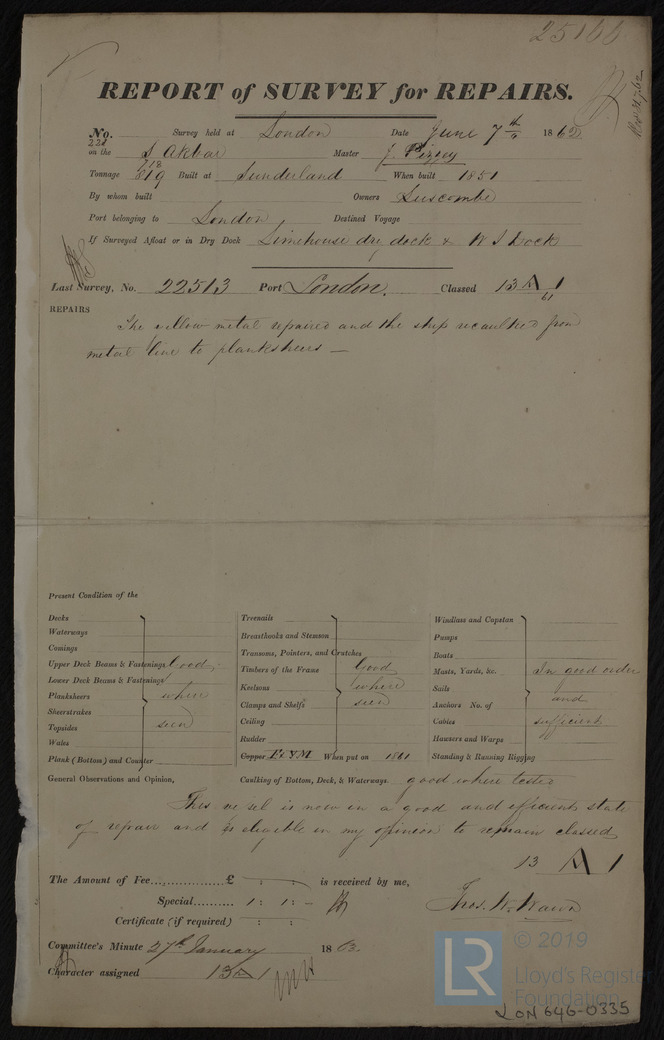 25166
REPORT of SURVEY for REPAIRS.
No. 221 Survey held at London Date June 7th 1862
on the S Akbar Master J. Pizzey
718
Tonnage 819 Built at Sunderland When built 1851
By whom built Owners Luscombe
Port belonging to London Destined Voyage
If Surveyed Afloat or in Dry Dock Limehouse dry dock & W I Dock
Last Survey, No. 22513 Port London. Classed 13 A 1
61
REPAIRS
The yellow metal repaired and the ship recaulked from
metal line to planksheers —
Present Condition of the
Decks
Waterways
Comings
Upper Deck Beams & Fastenings
Lower Deck Beams & Fastenings
Planksheers
Sheerstrakes
Topsides
Wales
Plank (Bottom) and Counter
Good
where
seen
Treenails
Breasthooks and Stemson
Transoms, Pointers, and Crutches
Timbers of the Frame
Keelsons
Clamps and Shelfs
Ceiling
Rudder
Copper F & YM When put on 1861
Good
where
seen
Windlass and Capstan
Pumps
Boats
Masts, Yards, &c.
Sails
Anchors No. of
Cables
Hawsers and Warps
Standing & Running Rigging
In good order
and
sufficient
General Observations and Opinion, Caulking of Bottom, Deck, & Waterways good where tested
This vessel is now in a good and efficient state
of repair and is eligible in my opinion to remain classed
13 A 1
The Amount of Fee............. £ : : is received by me,
Special.......... 1 : 1 : -
Certificate (if required) : :
Committee's Minute 27th January 1863.
Character assigned 13 A 1
LR © 2019
Lloyd's Register
Foundation
LON 646-0335